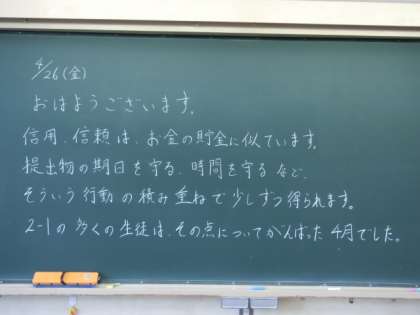 4/26(金)
おはようございます。
信用、信頼は、お金の貯金に似ています。
提出物の期日を守る、時間を守るなど、
そういう行動の積み重ねで少しずつ得られます。
2-1の多くの生徒は、その点についてがんばった4月でした。